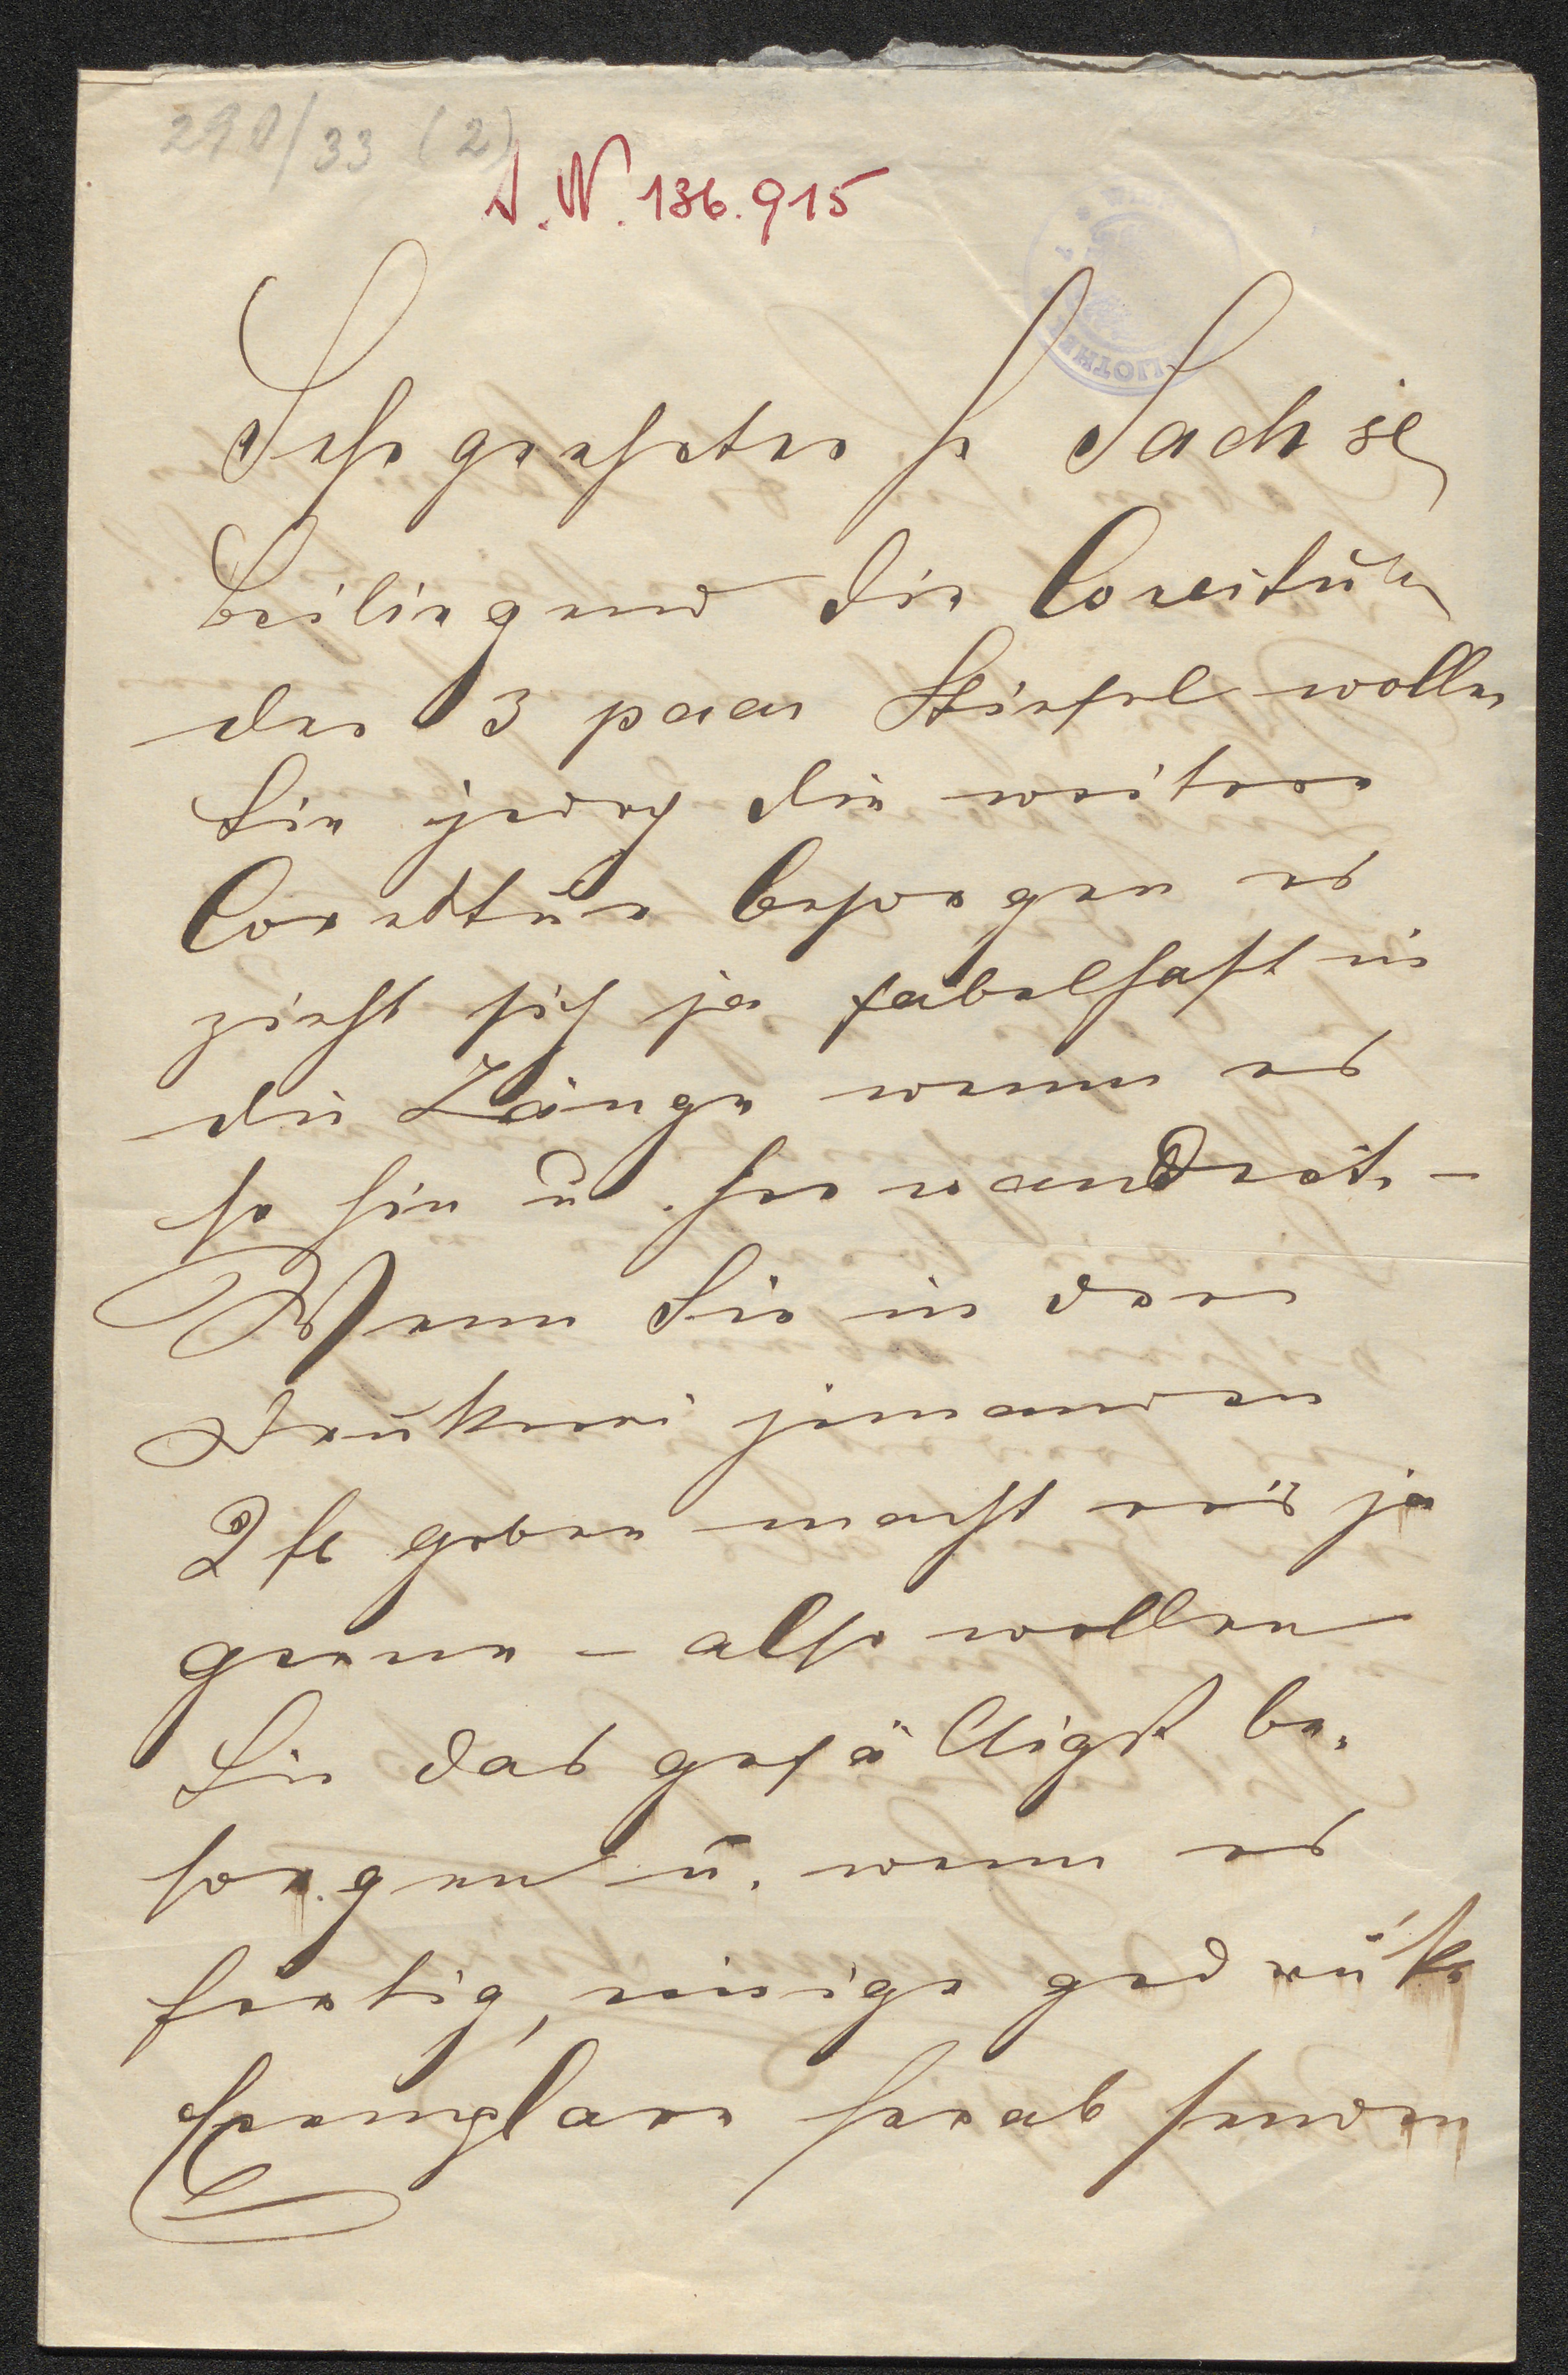 290/33 (2)
I.N. 136.915
Sehr geehrter H Sachse
Beiliegend die Corectur
der 3 paar Stiefel wollen
Sie jedoch die weitere
Corectur besorgen es
zieht sich ja fabelhaft in
die Länge wenn es
so hin u. her wandert –
Wenn Sie in der
Drukerei jemanden
2 fl geben macht eins ja
gerne – also wollen
Sie das gefälligst be-
sorgen u. wenn es
fertig, einige gedrükte
Exemplare herab senden